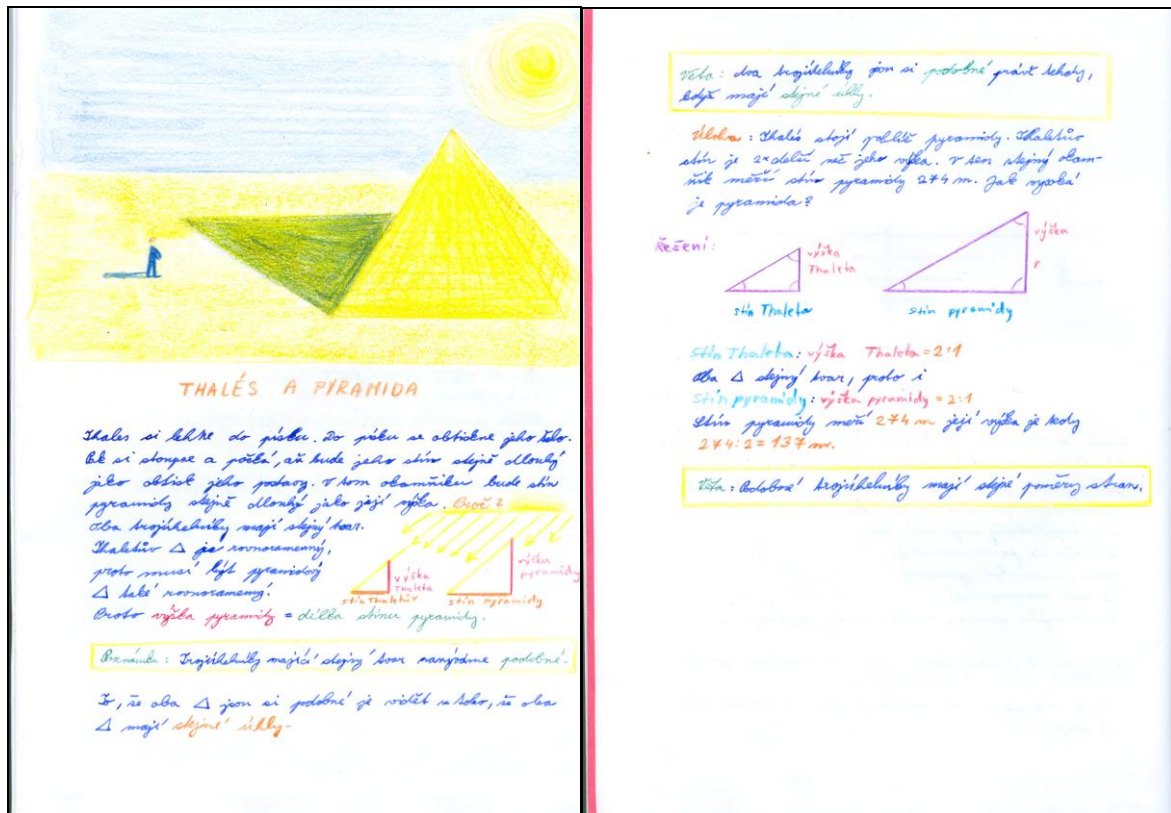 THALÉS A PYRAMIDA
Thales si lehne do písku. Do písku se obtiskne jeho tělo.
Pak si stoupne a počká, až bude jeho stín stejně dlouhý
jako obtisk jeho postavy. V tom okamžiku bude stín
pyramidy stejně dlouhý jako její výška. Proč?
Oba trojúhelníky mají stejný tvar.
Thaletův △ je rovnoramenný,
proto musí být pyramidový
△ také rovnoramenný.
Proto výška pyramidy = délka stínu pyramidy.
výška
Thaleta
stín Thaletův
výška
pyramidy
stín pyramidy
Poznámka: Trojúhelníky mající stejný tvar nazýváme podobné.
To, že oba △ jsou si podobné je vidět z toho, že oba
△ mají stejné úhly.
Věta: dva trojúhelníky jsou si podobné právě tehdy,
když mají stejné úhly.
Úloha: Thalés stojí poblíž pyramidy. Thaletův
stín je 2× delší než jeho výška. V ten stejný okam-
žik měří stín pyramidy 274 m. Jak vysoká
je pyramida?
Řešení:
výška
Thaleta
stín Thaleta
výška
P
stín pyramidy
Stín Thaleta: výška Thaleta = 2:1
Oba △ stejný tvar, proto i
Stín pyramidy: výška pyramidy = 2:1
Stín pyramidy měří 274 m její výška je tedy
274:2 = 137 m.
Věta: Podobné trojúhelníky mají stejné poměry stran.